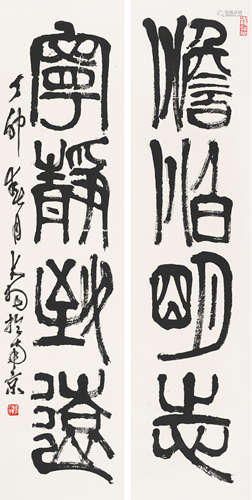 澹泊明志
寧靜致遠
丁卯春月大羽於南京